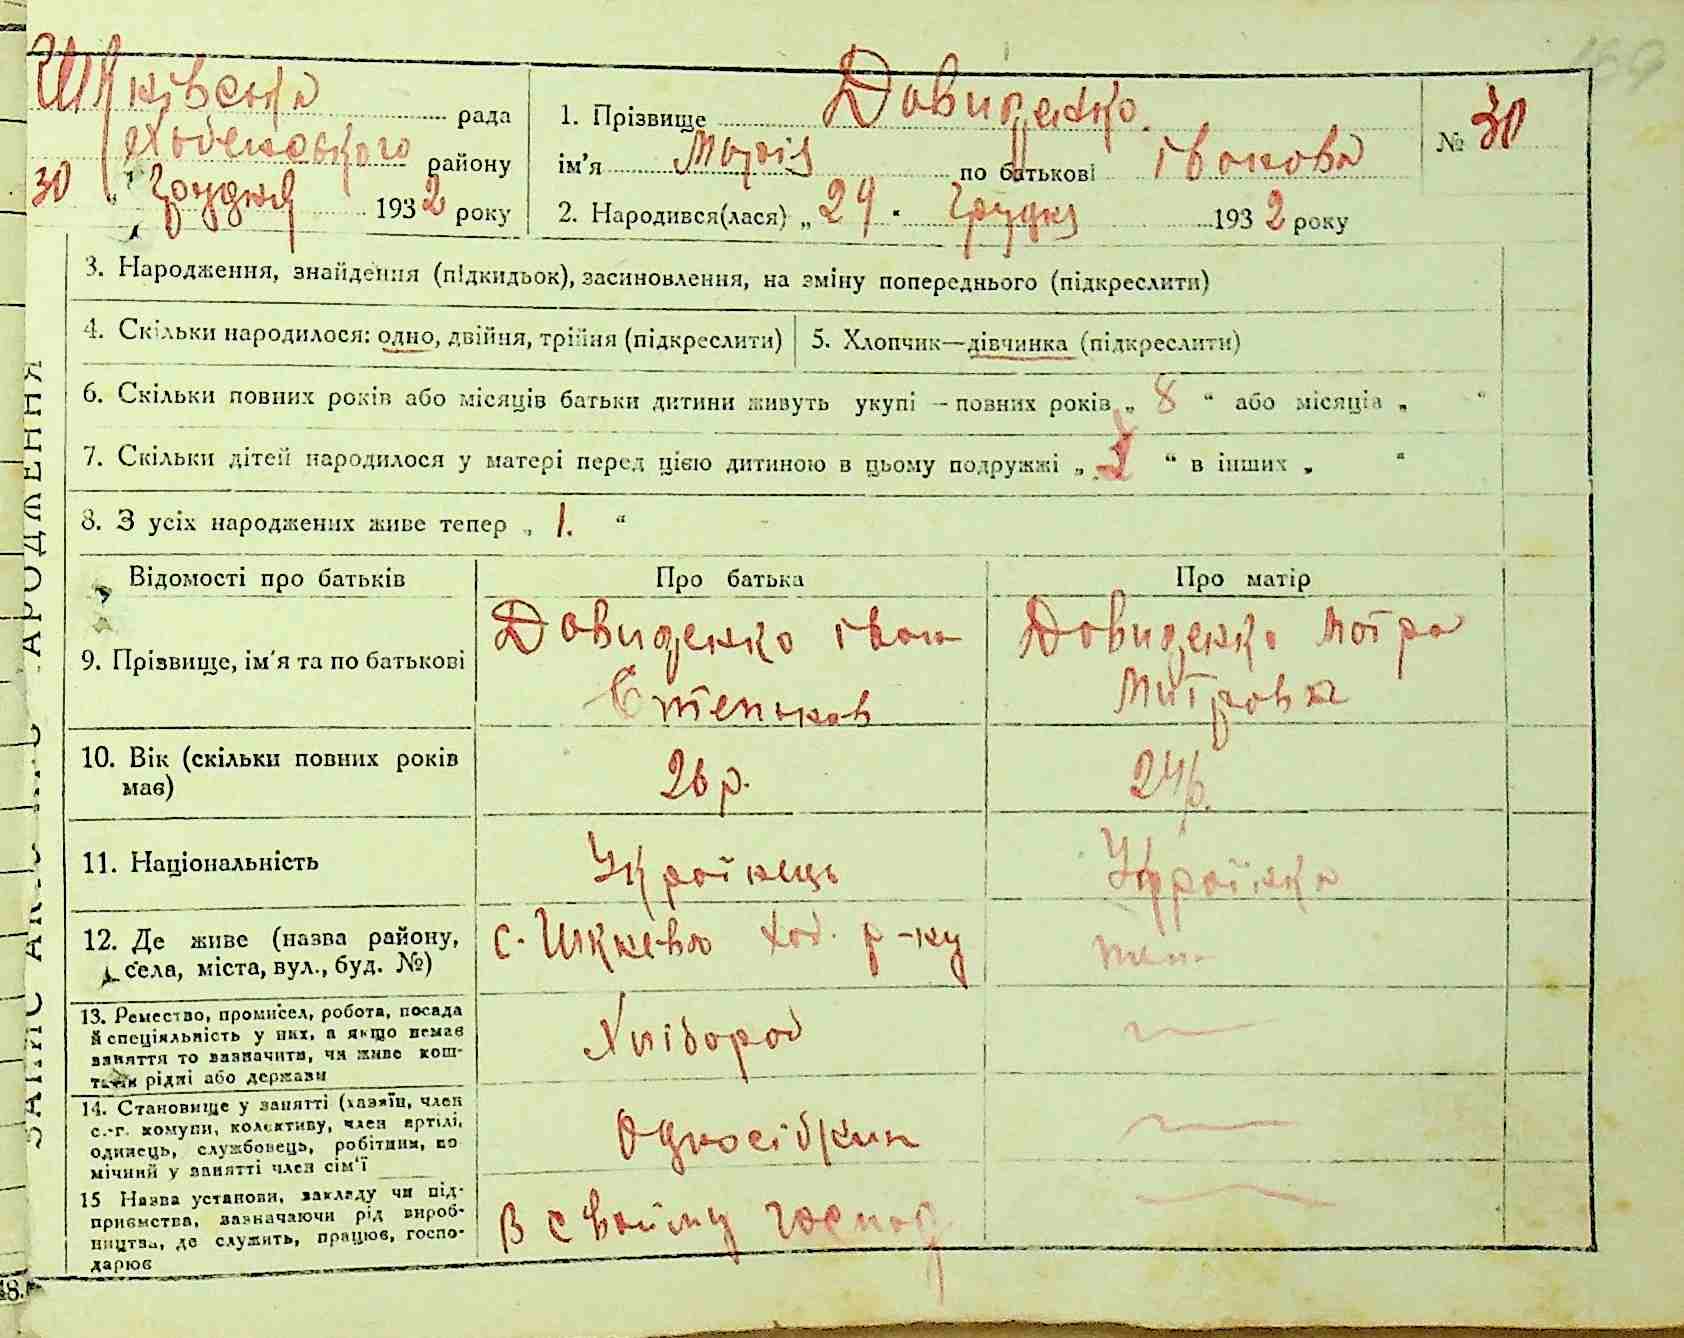 169
Шлківська рада
Ходенського району
30 " Грудня 1932 року
1. Прізвище Давиденко
ім'я Марія по батькові івонова
№ 30
2. Народився(лася) „ 24 " Грудня 1932 року
3. Народження, знайдення (підкидьок), засиновлення, на зміну попереднього (підкреслити)
4. Скільки народилося: одно, двійня, трійня (підкреслити)
5. Хлопчик—дівчинка (підкреслити)
6. Скільки повних років або місяців батьки дитини живуть укупі – повних років „ 8 “ або місяців „ “
7. Скільки дітей народилося у матері перед цією дитиною в цьому подружжі „ “ в інших „ “
8. З усіх народжених живе тепер „ 1. “
Відомості про батьків
Про батька
Про матір
9. Прізвище, ім'я та по батькові
Давиденко івон
Степнов
Давиденко Мотра
Митровна
10. Вік (скільки повних років
має)
26 р.
24 р.
11. Національність
Українець
Українка
12. Де живе (назва району,
села, міста, вул., буд. №)
с. Шккево Ход. р-ну
13. Ремество, промисел, робота, посада
й спеціяльність у них, а якщо немає
заняття то зазначити, чи живе кош-
тами рідні або держави
Хлібороб
14. Становище у занятті (хазяїн, член
с.-г. комуни, колективу, член артілі,
одинець, службовець, робітник, по
мічний у занятті член сім'ї
Одноосібник
15 Назва установи, закладу чи під-
приємства, зазначаючи рід вироб-
ництва, де служить, працює, госпо-
дарює
В свойму господ
ЗАПИС АКТ НАРОДЖЕННЯ
18.